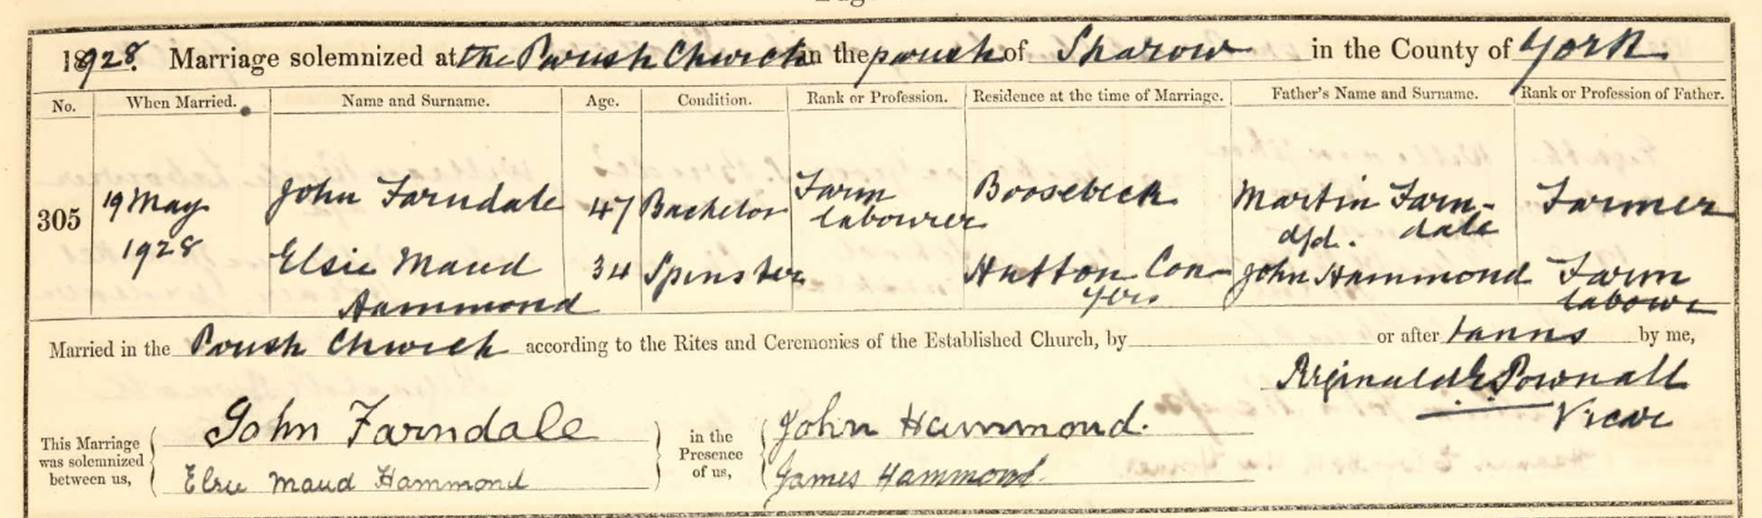 1928. Marriage solemnized at the Parish Church in the parish of Sharow in the County of York
No. When Married. Name and Surname. Age. Condition. Rank or Profession. Residence at the time of Marriage. Father's Name and Surname. Rank or Profession of Father.
305 19 May 1928 John Farndale 47 Bachelor Farm labourer Boosebeck Martin Farn-dale d/d. Farmer
Elsie Maud Hammond 34 Spinster Hutton Conyers John Hammond Farm labourer
Married in the Parish Church according to the Rites and Ceremonies of the Established Church, by or after banns by me,
Reginald Pownall
Vicar
This Marriage was solemnized between us, John Farndale Elsie Maud Hammond in the Presence of us, John Hammond. James Hammond.